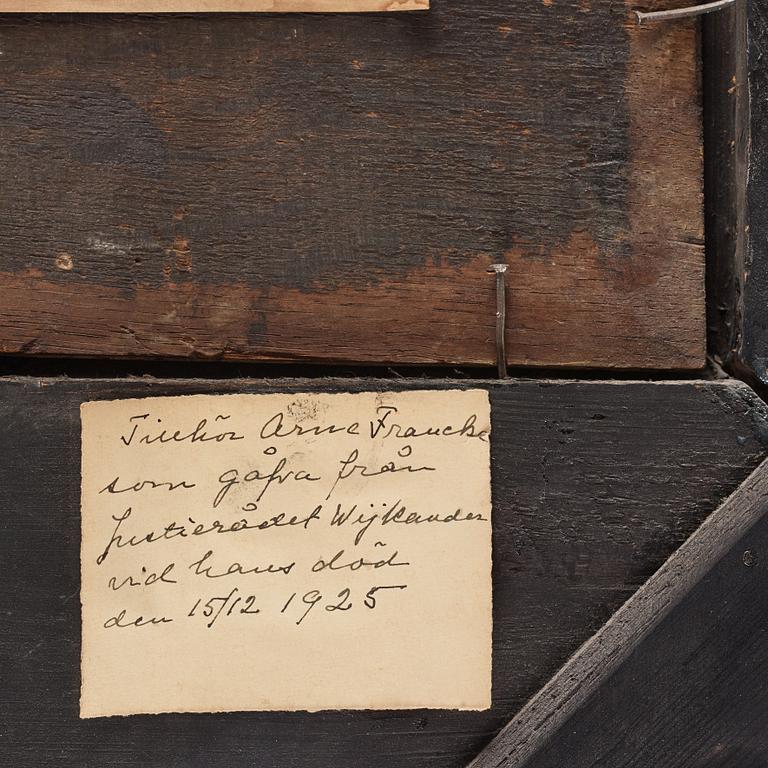 Tillhör Arne Francke
som gåfva från
Justierådet Wijkander
vid hans död
den 15/12 1925